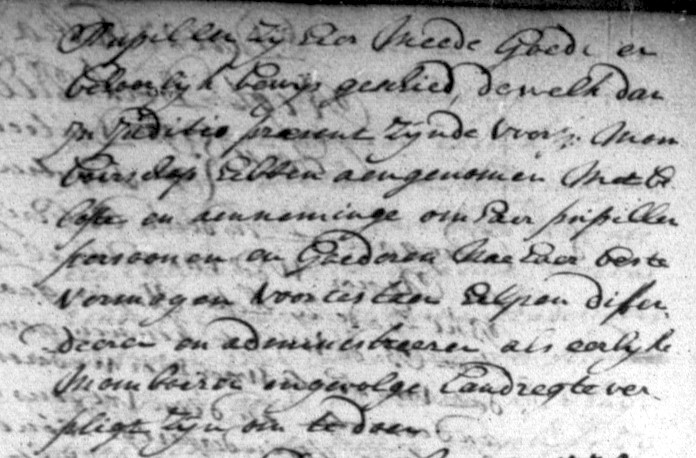 Pupillen zij haer meede Goede en
behoorlijk bewijs geschied, dewelk dan
in Juditio present zijnde voors: Mom
boirschap hebben aengenomen Met be
lofte en aenneminge om haer pupillen
persoonen en Goederen Nae haer beste
vermogen voortestaen helpen diffen
deeren en administreeren als eerlijke
Momboiren ingevolge Landregte ver
pligt zijn om te doen